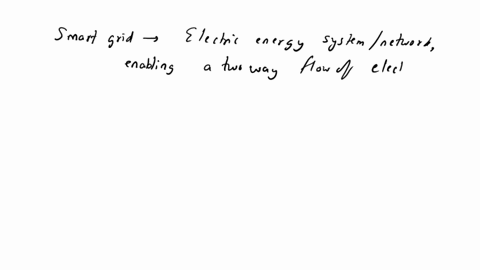 Smart grid → Electric energy system/network,
enabling a two way flow of elect